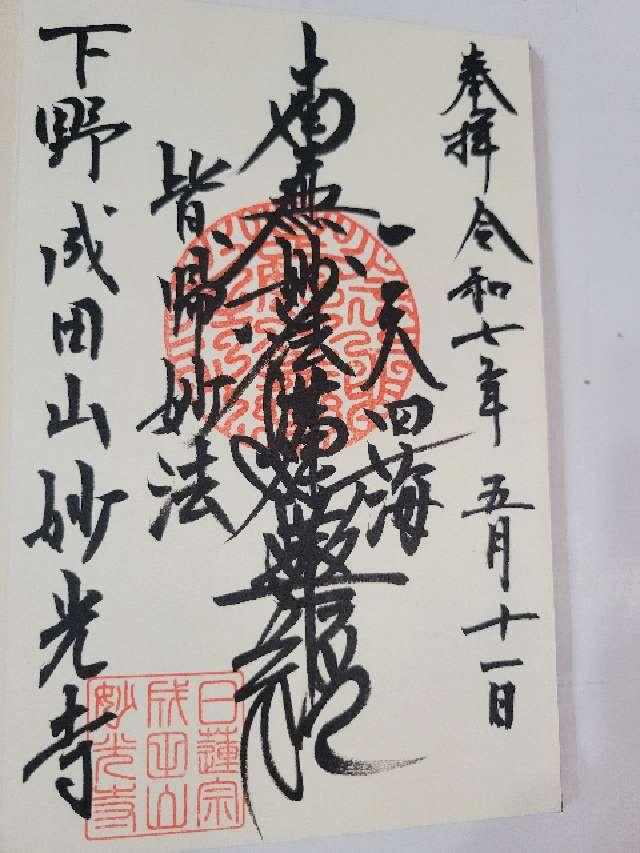 奉拝 令和七年 五月十一日
一天四海
南無妙法蓮華経
皆帰妙法
下野成田山妙光寺
日蓮宗
成田山
妙光寺